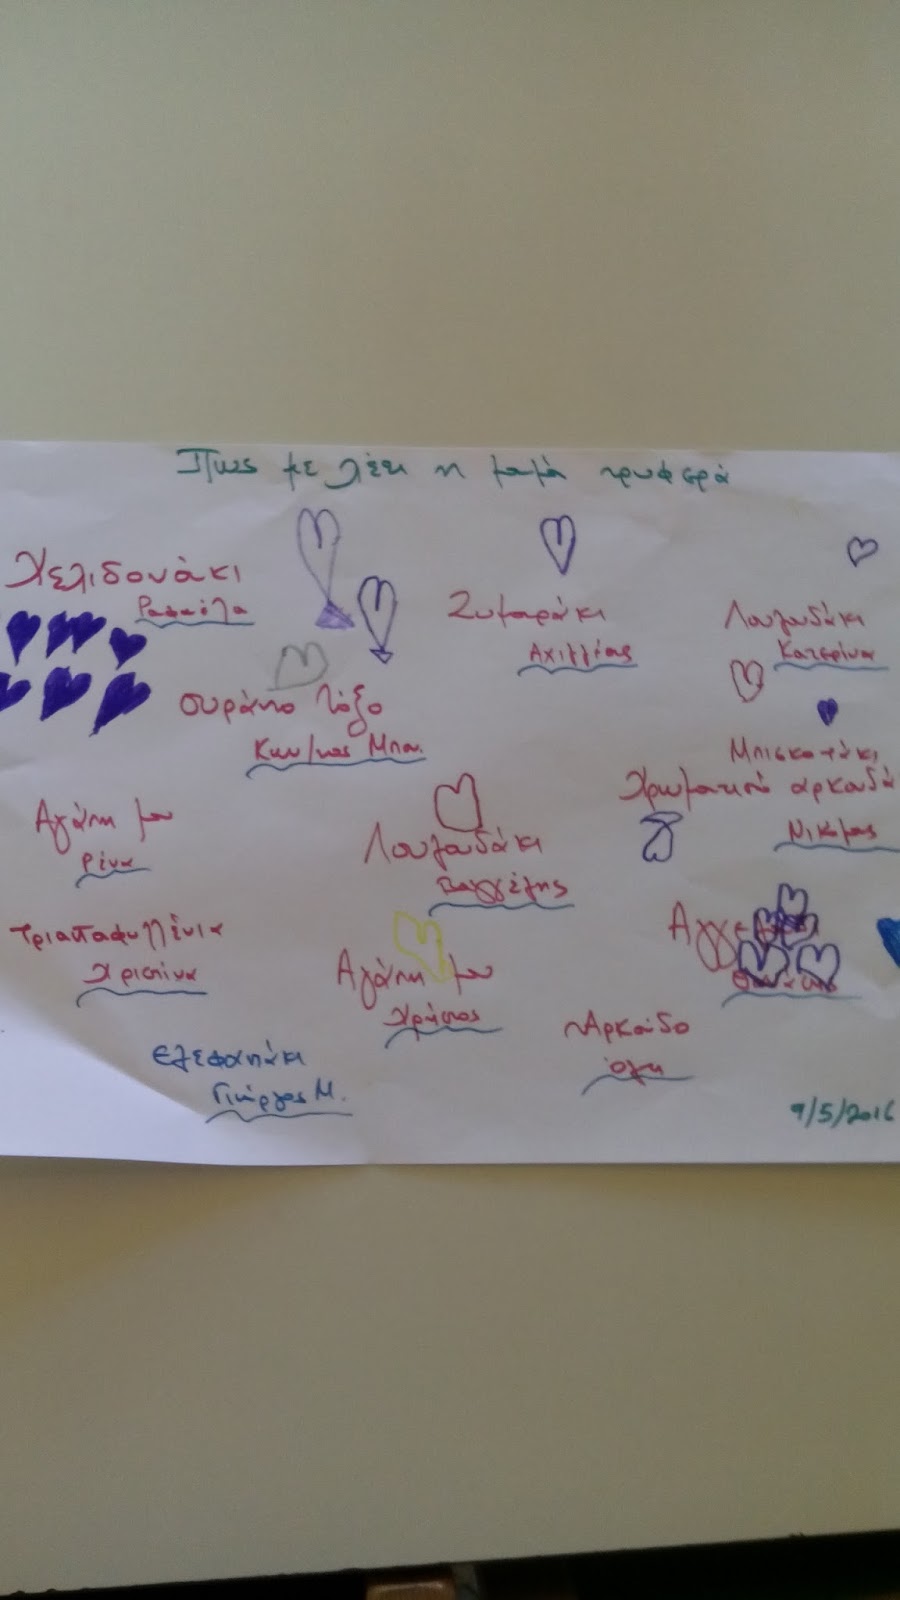 Πως με λέει η μαμά τρυφερά
Χελιδονάκι
Ραφαέλα
Ζυμαράκι
Αχιλλέας
Λουλουδάκι
Κατερίνα
ουράνιο τόξο
Κων/νος Μπα.
Μπισκοτάκι,
Χρωματιστό αρκουδά
Νικόλας
Αγάπη μου
Ρένα
Λουλουδάκι
Βαγγέλης
τριανταφυλλένια
Χριστίνα
Αγάπη μου
Χρήστος
Αρκούδο
Όλγα
ελεφαντάκι
Γιώργος Μ.
9/5/2016